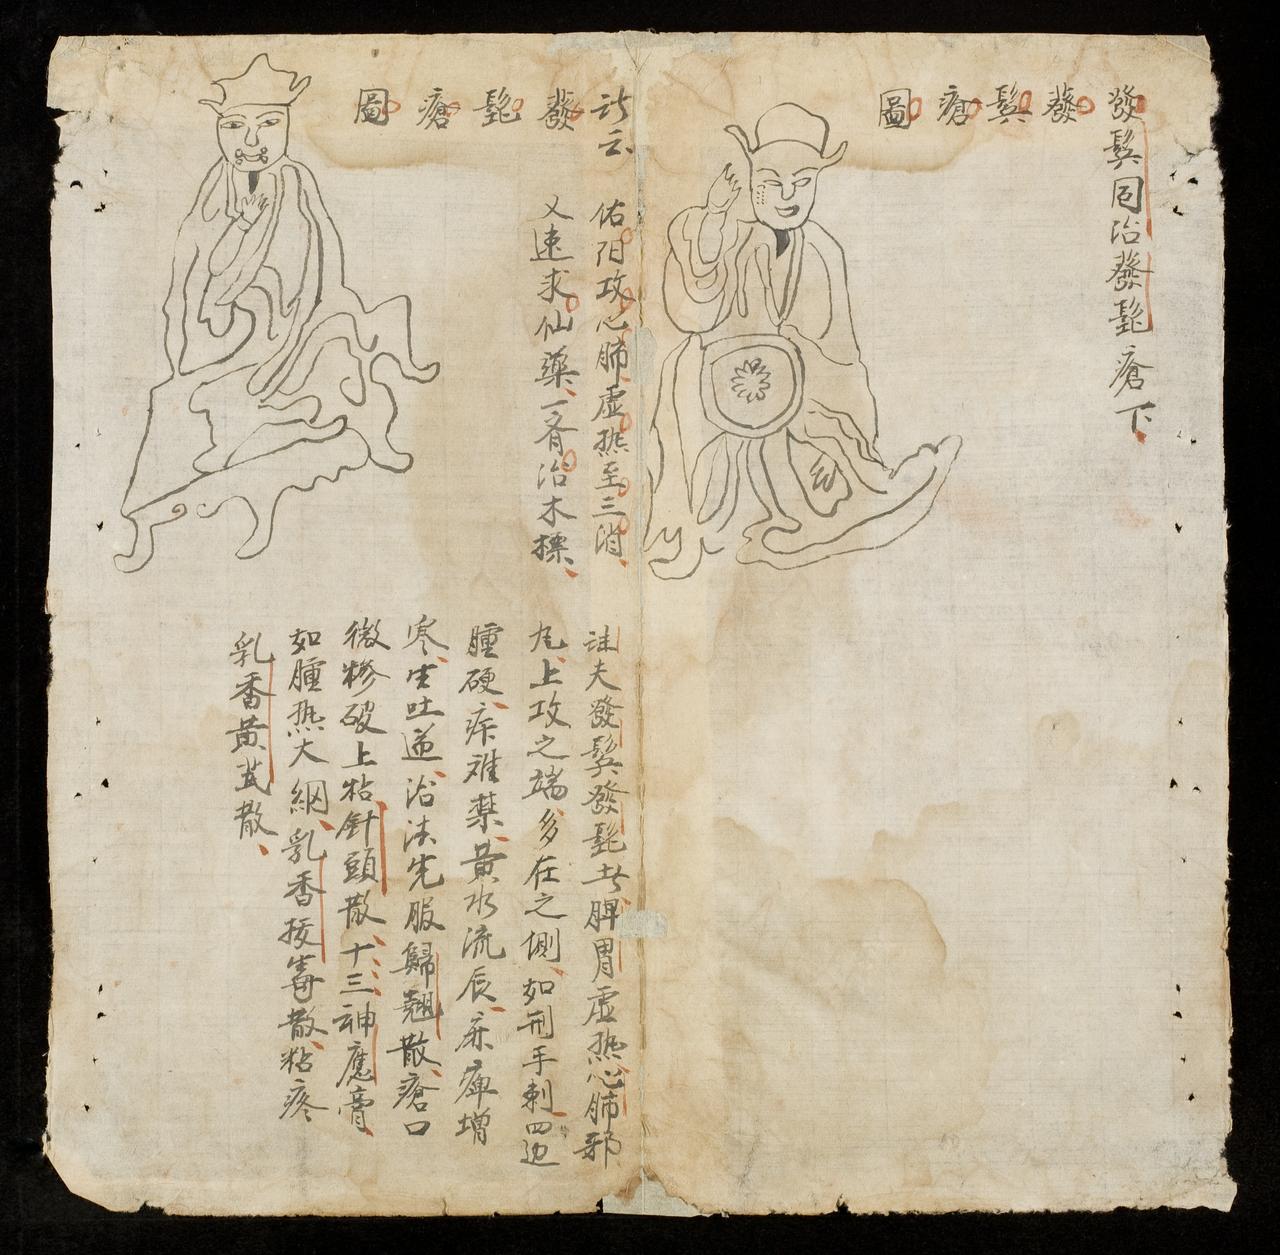 發鬓同治發髭瘡下
發鬓瘡圖
訣云
佑阳攻心肺虚热至三消
又速求仙藥一齊治木標
發髭瘡圖
註夫發鬓發髭者脾胃虚热心肺邪
上攻之端多在之側如刑手刺四边
腫硬疼难禁黄水流辰麻痺增
寒生吐逆治法先服歸翘散瘡口
微糝破上粘針頭散十三神應膏
如腫热大網乳香拔毒散粘疼
乳香黄芪散